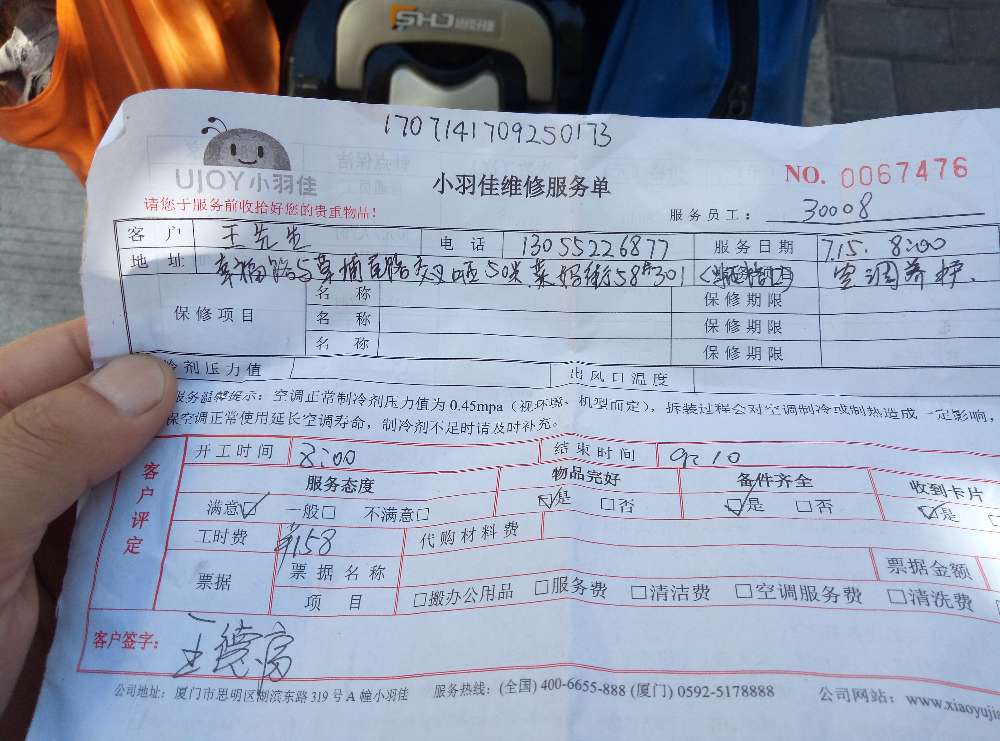 SHJ
1707141709250173
UJOY小羽佳
小羽佳维修服务单
NO. 0067476
请您于服务前收拾好您的贵重物品!
服务员工: 30008
客户 王先生 电话 13055226877 服务日期 7.15. 8:00
地址 莆田路交叉 50米 58# 301 空调养护.
保修项目 名称 保修期限
名称 保修期限
名称 保修期限
冷剂压力值 出风口温度
服务温馨提示: 空调正常制冷剂压力值为0.45mpa (视环境、机型而定), 拆装过程会对空调制冷或制热造成一定影响,
保空调正常使用延长空调寿命, 制冷剂不足时请及时补充。
客户评定
开工时间 8:00 结束时间 9:10
服务态度 物品完好 备件齐全 收到卡片
满意☑ 一般□ 不满意□ ☑是 □否 ☑是 □否 ☑是
工时费 ¥158 代购材料费
票据 票据名称 票据金额
项目 □搬办公用品 □服务费 □清洁费 □空调服务费 □清洗费
客户签字: 王德富
公司地址: 厦门市思明区湖滨东路319号A幢小羽佳 服务热线: (全国) 400-6655-888 (厦门) 0592-5178888 公司网站: www.xiaoyujia